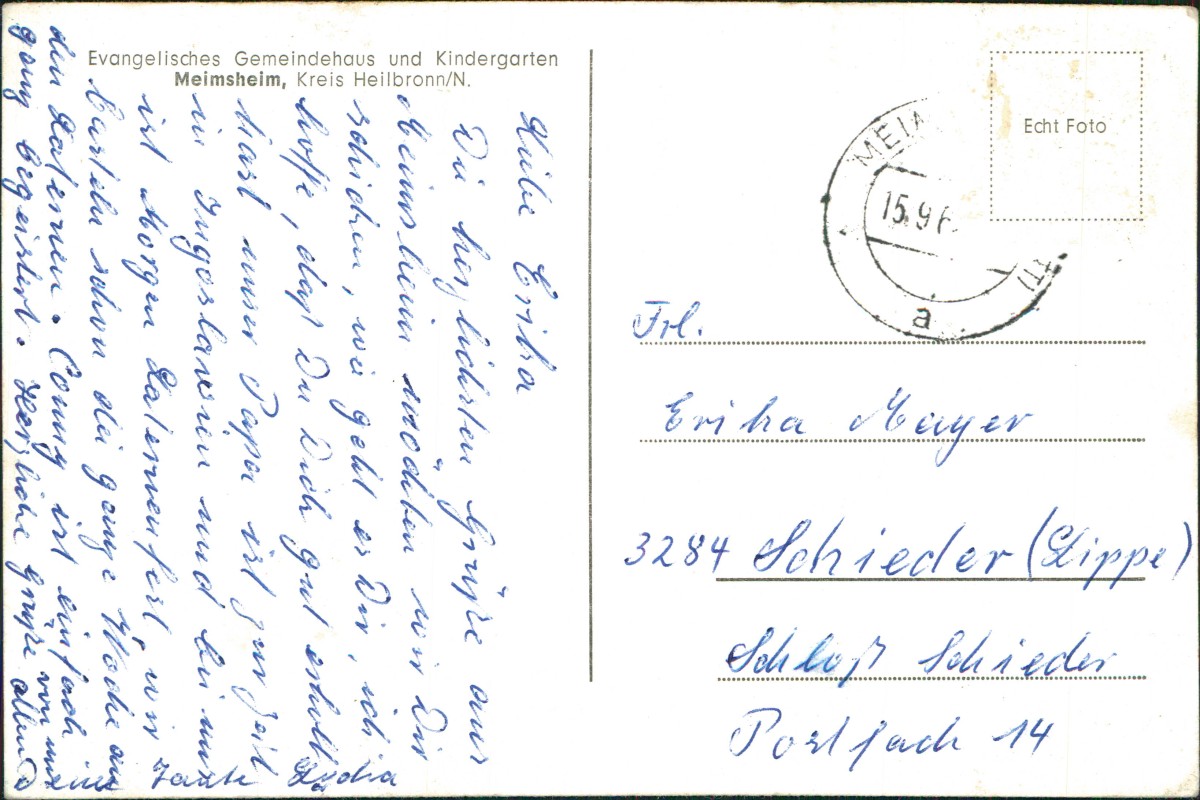 Evangelisches Gemeindehaus und Kindergarten
Meimsheim, Kreis Heilbronn/N.
Liebe Erika
Die herzlichsten Grüße aus
Meimsheim möchten wir Dir
schicken, wie geht es Dir, ich
hoffe, daß Du Dich gut erholt
hast unser Papa ist zur Zeit
in Jugoslawien und bei uns
ist Morgen Laternenfest, wir
basteln schon die ganze Woche an
den Laternen. Conny ist einfach
ganz begeistert. Herzliche Grüße von uns
allen
Deine Tante Lydia
Echt Foto
MEIM
15.9.6
a
Frl.
Erika Mayer
3284 Schieder (Lippe)
Schloß Schieder
Postfach 14